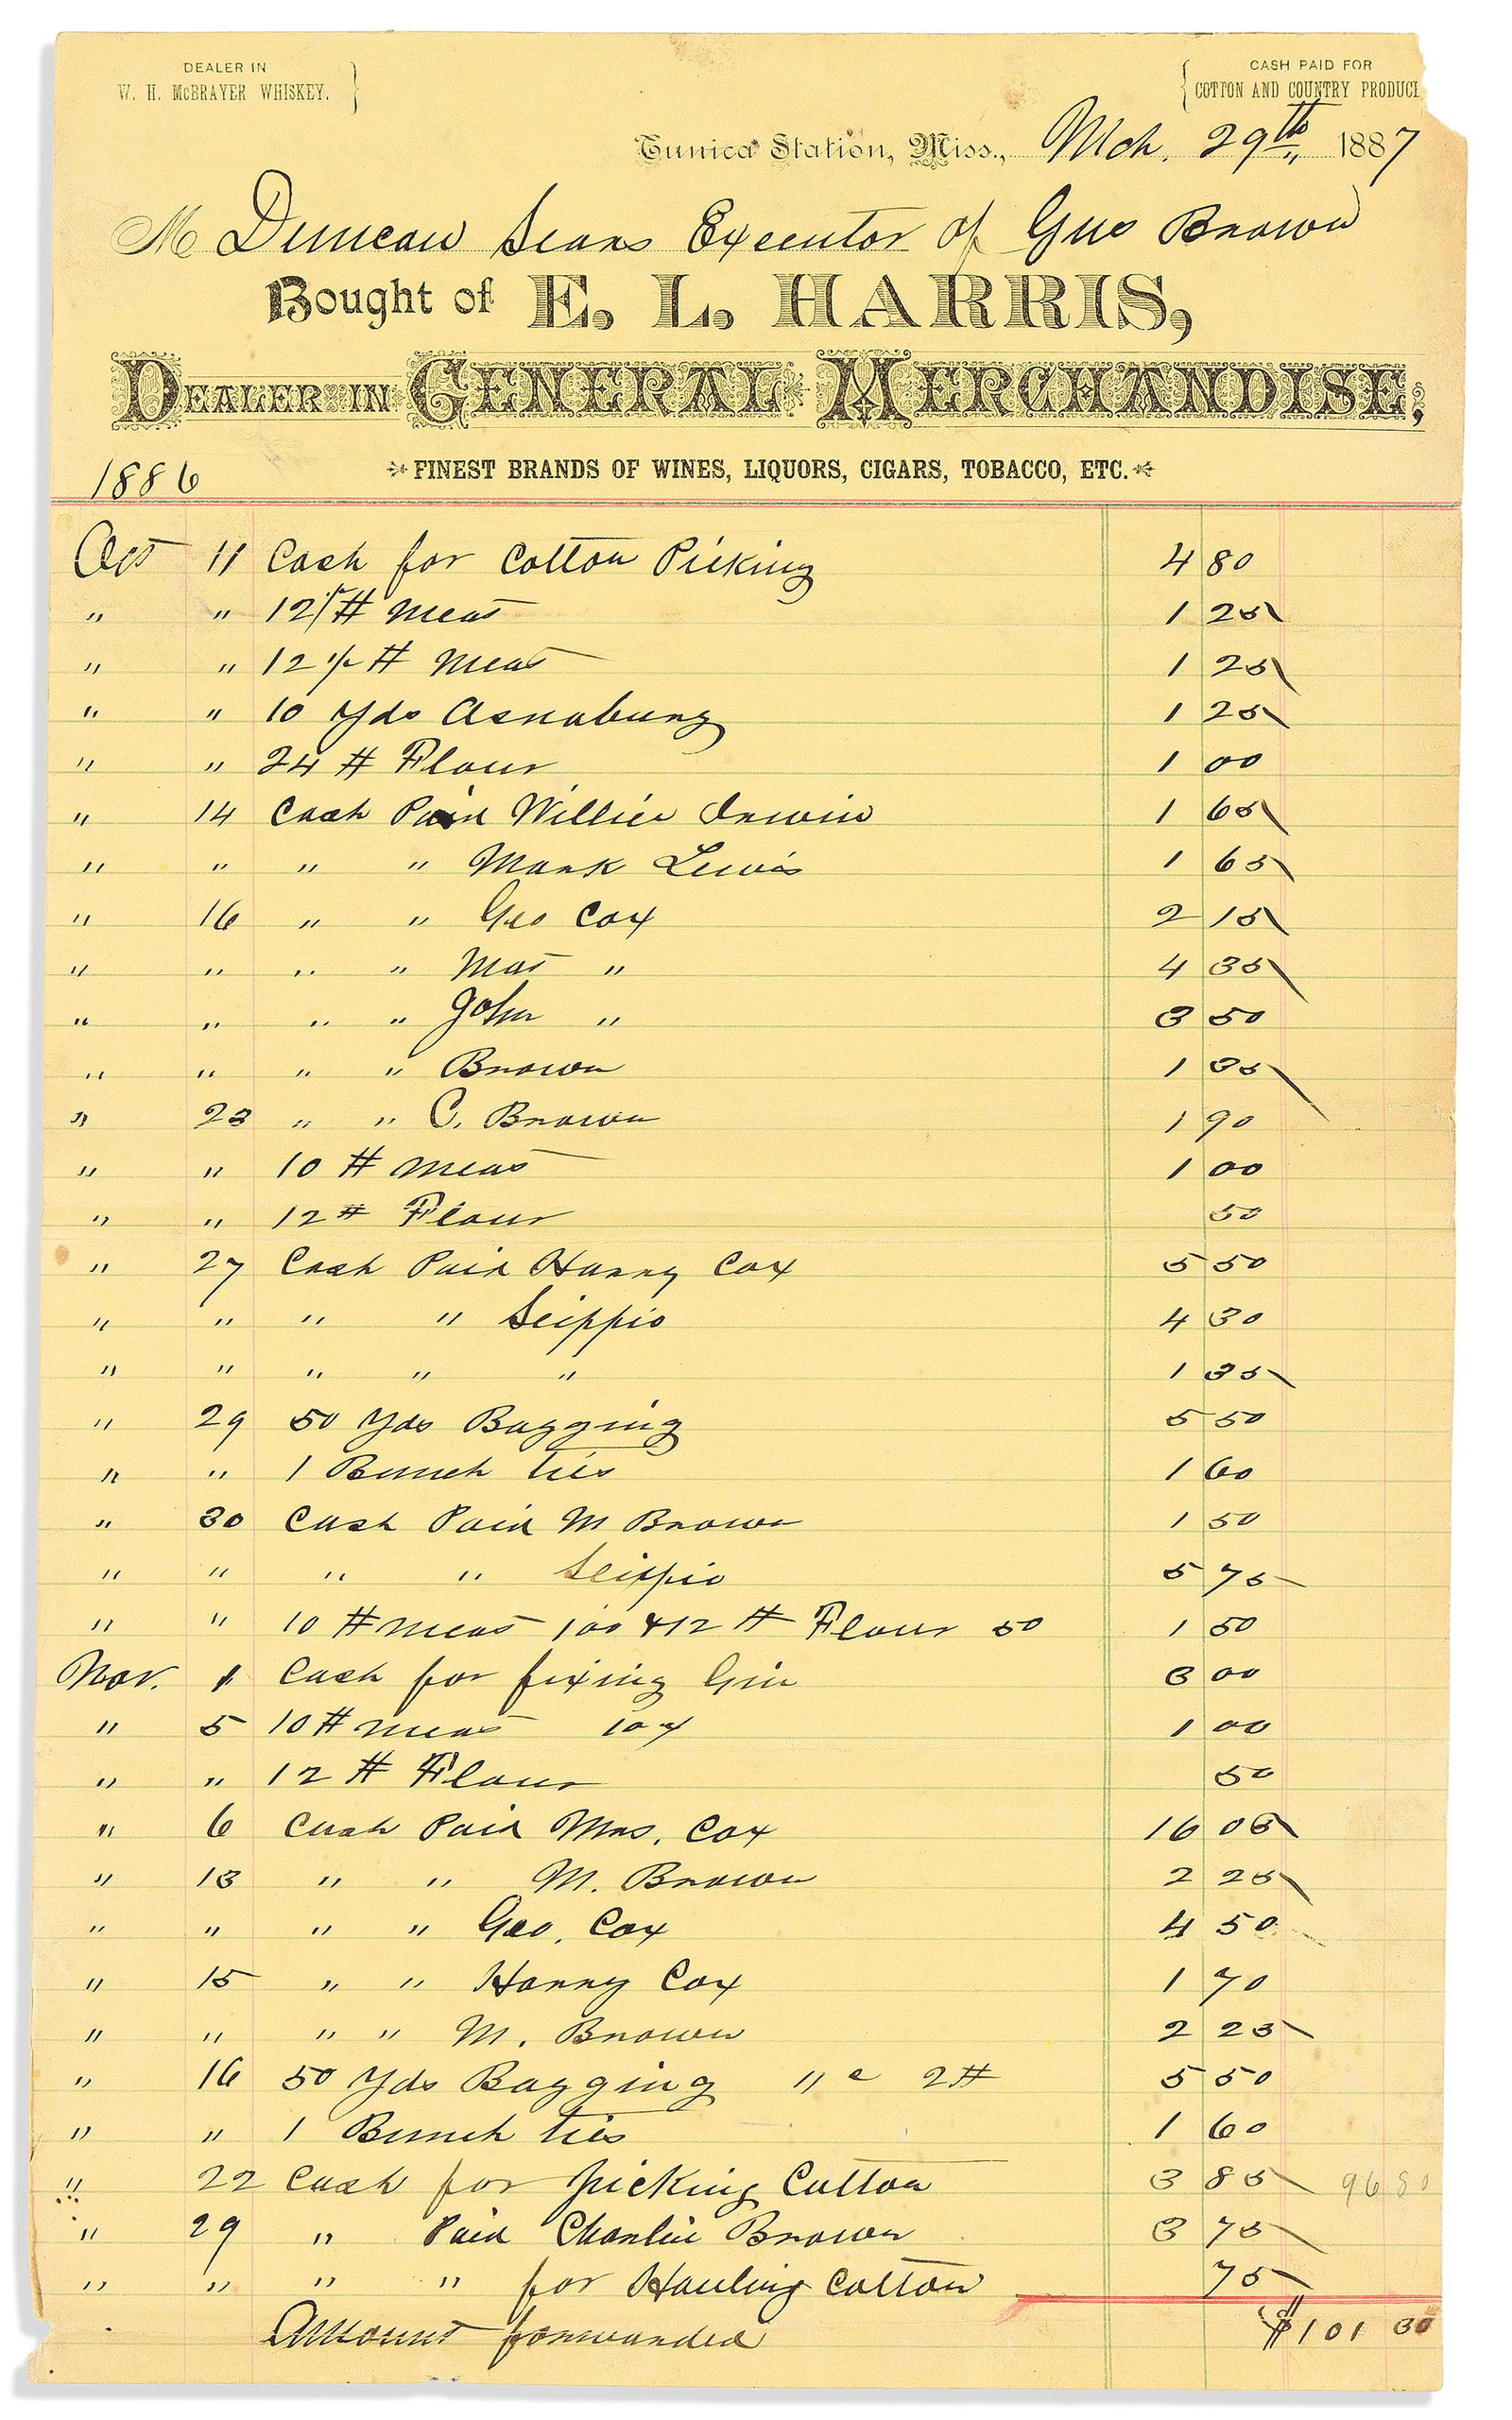 DEALER IN
W. H. McBRAYER WHISKEY.
CASH PAID FOR
COTTON AND COUNTRY PRODUCE
Tunica Station, Miss., Mch. 29th, 1887
M Duncan Sears Executor of Gus Brown
Bought of E. L. HARRIS,
DEALER IN GENERAL MERCHANDISE,
FINEST BRANDS OF WINES, LIQUORS, CIGARS, TOBACCO, ETC.
1886
Oct 11 Cash for Cotton Picking 4 80
" " # Meat 1 25
" " 12 1/2 # Meat 1 25
" " 10 Yds Asnaburg 1 25
" " 24 # Flour 1 00
" 14 Cash Paid Willie Irwin 1 65
" " " " Mark Lewis 1 65
" 16 " " Geo Cox 2 15
" " " " Mat " 4 35
" " " " John " 3 50
" " " " Brown 1 35
" 23 " " C. Brown 1 90
" " 10 # Meat 1 00
" " 12 # Flour 50
" 27 Cash Paid Harry Cox 5 50
" " " " Scippio 4 30
" " " " " 1 35
" 29 50 Yds Bagging 5 50
" " 1 Bunch ties 1 60
" 30 Cash Paid M Brown 1 50
" " " " Scippio 5 75
" " 10 # Meat 100 & 12 # Flour 50 1 50
Nov. 1 Cash for fixing Gin 3 00
" 5 10 # Meat 1 00
" " 12 # Flour 50
" 6 Cash Paid Mrs. Cox 16 05
" 13 " " M. Brown 2 25
" " " " Geo. Cox 4 50
" 15 " " Harry Cox 1 70
" " " " M. Brown 2 25
" 16 50 Yds Bagging 11 c 2 # 5 50
" " 1 Bunch ties 1 60
" 22 Cash for picking Cotton 3 85 96 80
" 29 " Paid Charlie Brown 3 75
" " " " for Hauling Cotton 75
Amount forwarded $101 30